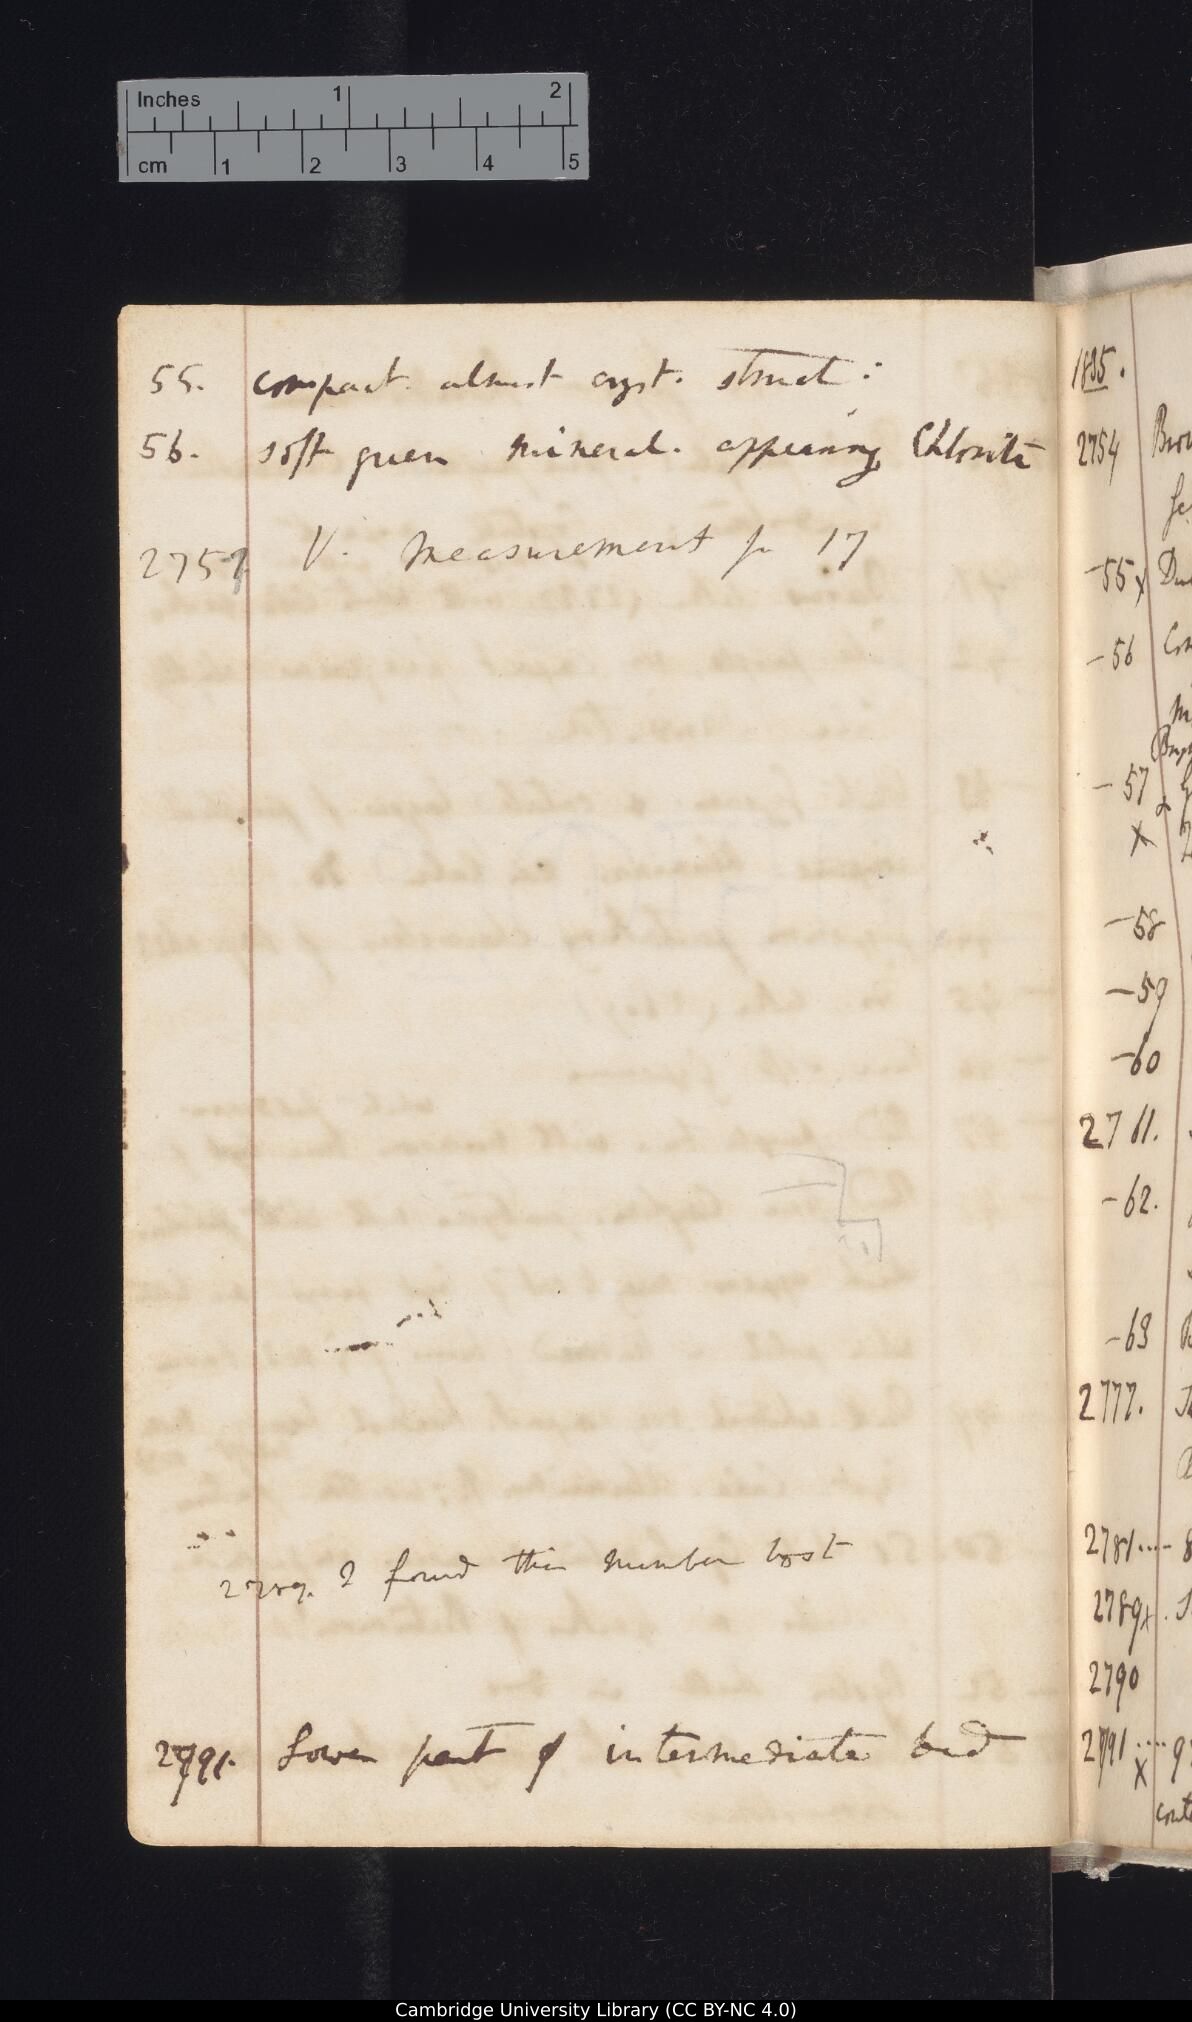 Inches 1 2
cm 1 2 3 4 5
55. compact. almost cryst. struct:
56. soft green mineral. appearing Chlorite
2757 V. Measurement p 17
2789. I found this number lost
2791. Lower part of intermediate bed
1835.
2754
-55 x
-56
-57
x
-58
-59
-60
2761.
-62.
-63
2777.
2781....
2789 x
2790
2791....
x
Cambridge University Library (CC BY-NC 4.0)